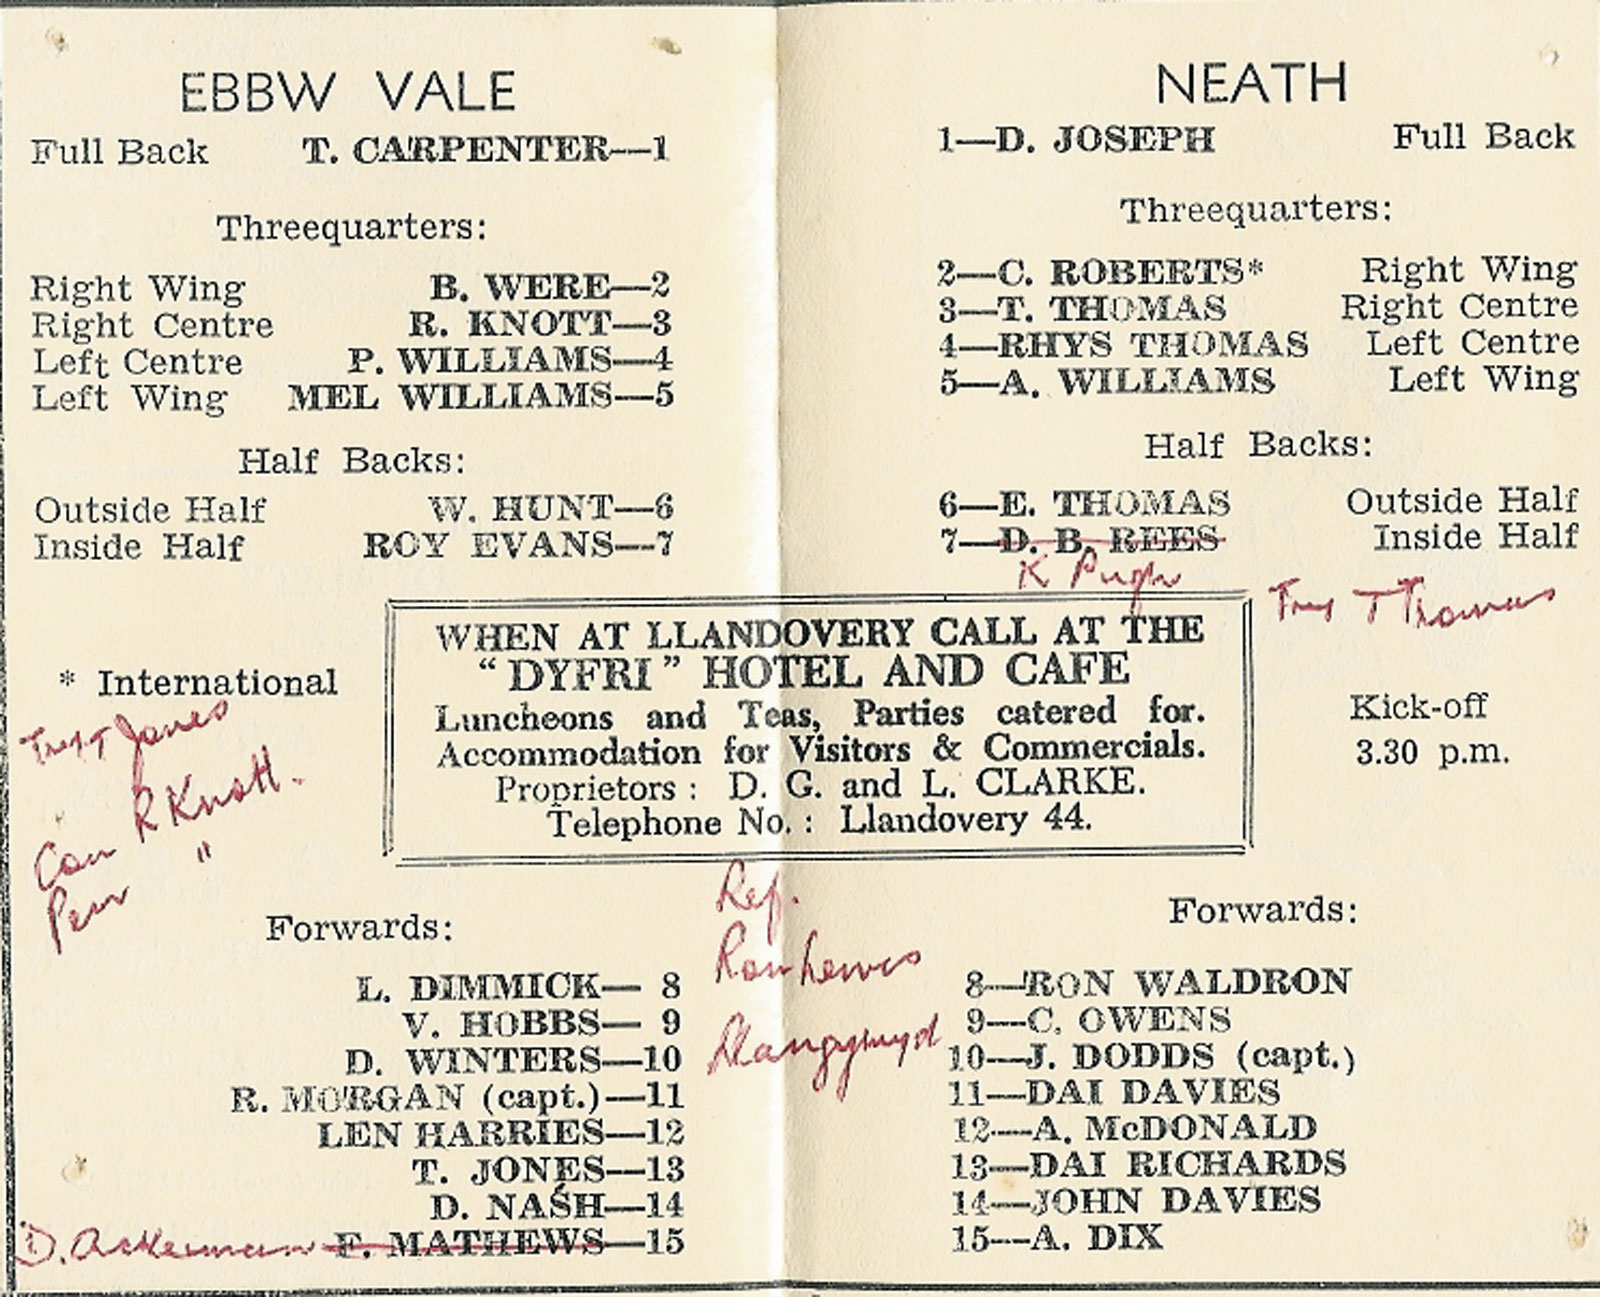 EBBW VALE
Full Back T. CARPENTER—1
Threequarters:
Right Wing B. WERE—2
Right Centre R. KNOTT—3
Left Centre P. WILLIAMS—4
Left Wing MEL WILLIAMS—5
Half Backs:
Outside Half W. HUNT—6
Inside Half ROY EVANS—7
* International
Try T Jones
Con R Knott.
Pen "
Forwards:
L. DIMMICK— 8
V. HOBBS— 9
D. WINTERS—10
R. MORGAN (capt.)—11
LEN HARRIES—12
T. JONES—13
D. NASH—14
D. Ackerman F. MATHEWS—15
NEATH
1—D. JOSEPH Full Back
Threequarters:
2—C. ROBERTS* Right Wing
3—T. THOMAS Right Centre
4—RHYS THOMAS Left Centre
5—A. WILLIAMS Left Wing
Half Backs:
6—E. THOMAS Outside Half
7—D. B. REES Inside Half
K Pugh
Try T Thomas
WHEN AT LLANDOVERY CALL AT THE
"DYFRI" HOTEL AND CAFE
Luncheons and Teas, Parties catered for.
Accommodation for Visitors & Commercials.
Proprietors : D. G. and L. CLARKE.
Telephone No. : Llandovery 44.
Kick-off
3.30 p.m.
Ref.
Ron Lewis
Forwards:
8—RON WALDRON
9—C. OWENS
10—J. DODDS (capt.)
11—DAI DAVIES
12—A. McDONALD
13—DAI RICHARDS
14—JOHN DAVIES
15—A. DIX